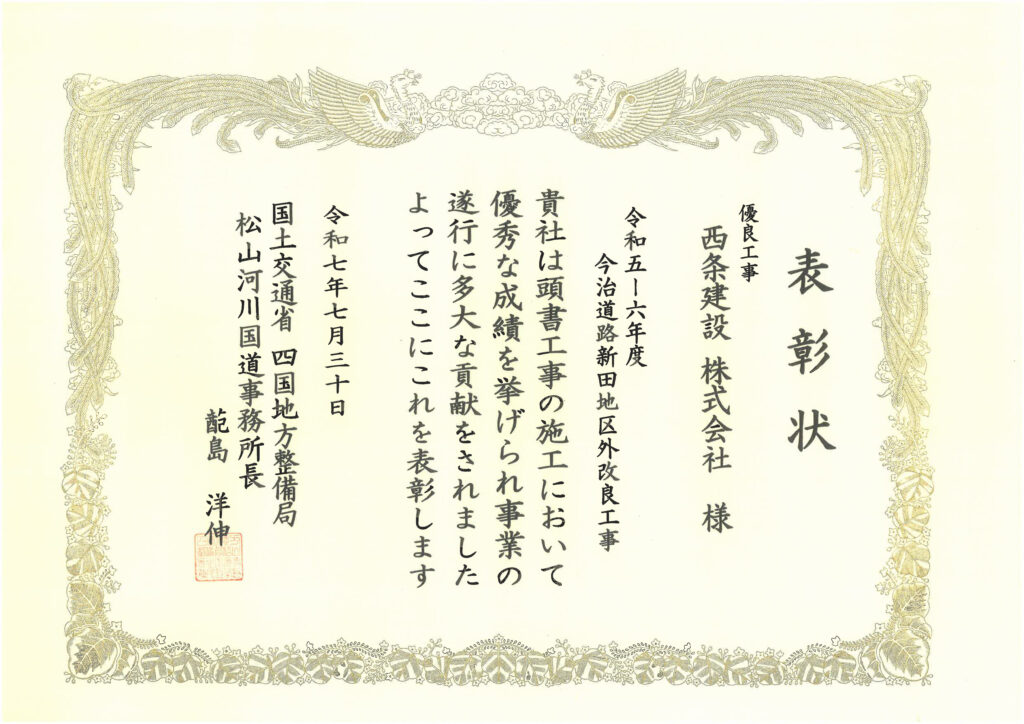 表彰状
優良工事
西条建設 株式会社 様
令和五ー六年度
今治道路新田地区外改良工事
貴社は頭書工事の施工において
優秀な成績を挙げられ事業の
遂行に多大な貢献をされました
よってここにこれを表彰します
令和七年七月三十日
国土交通省 四国地方整備局
松山河川国道事務所長
蓜島 洋伸